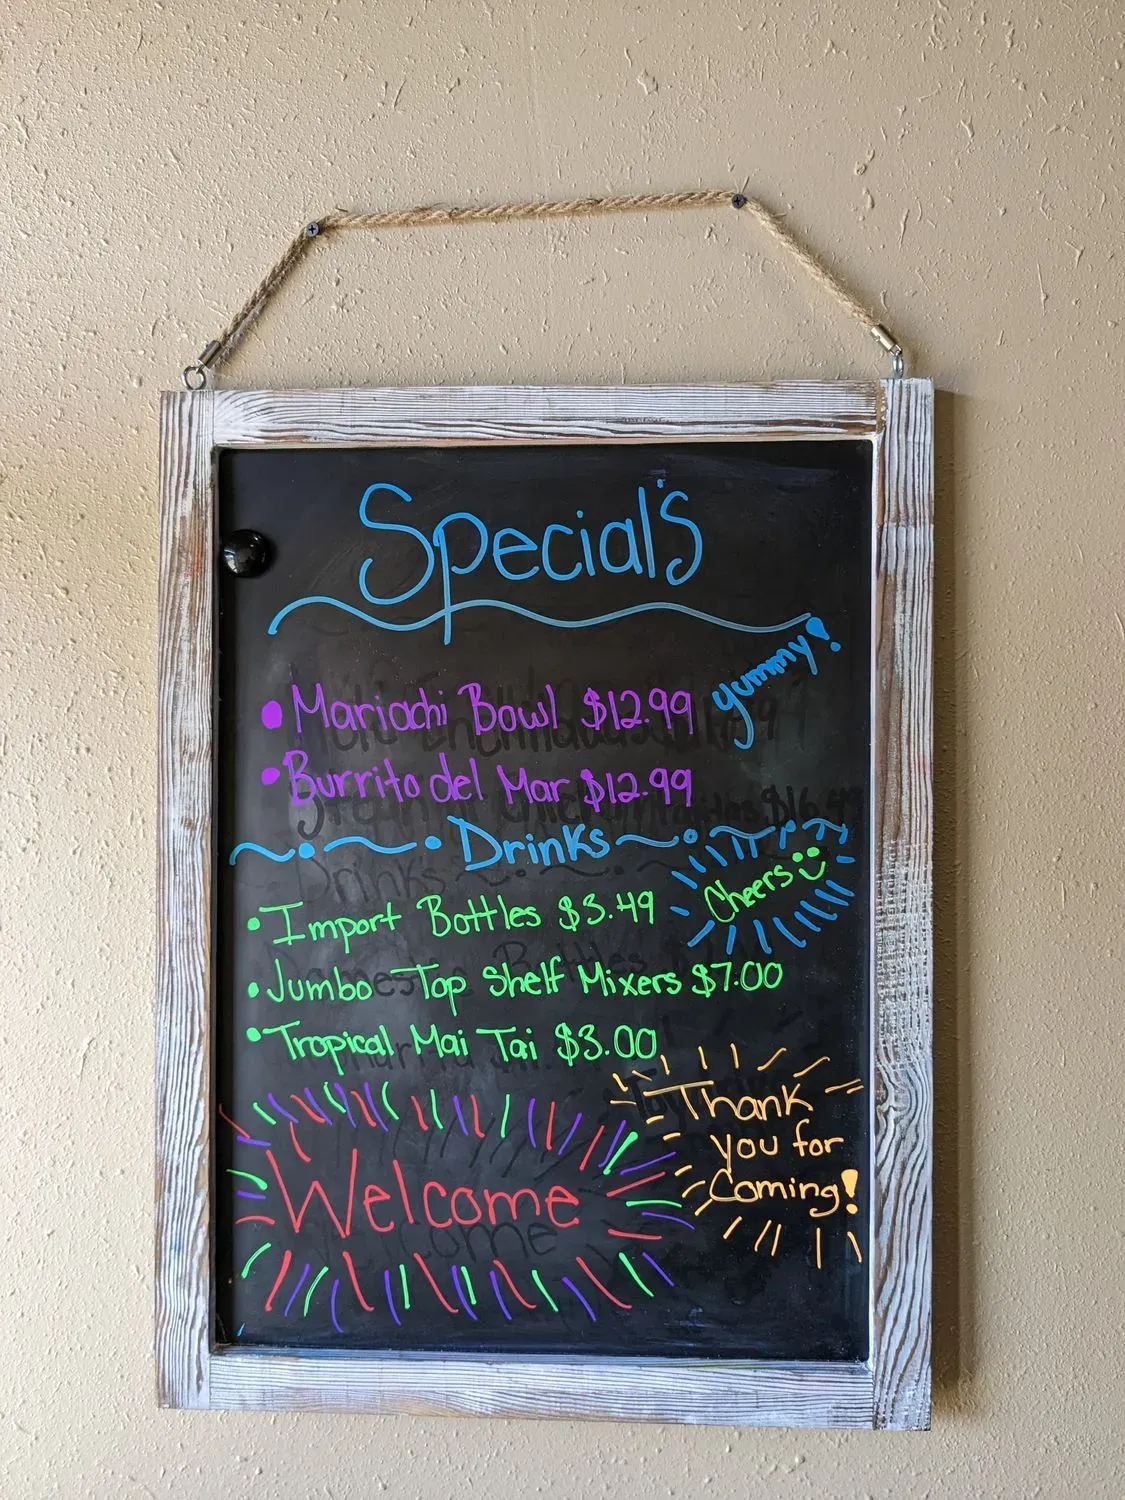 Special's
yummy!
• Mariachi Bowl $12.99
• Burrito del Mar $12.99
Drinks
Cheers
• Import Bottles $3.49
• Jumbo Top Shelf Mixers $7.00
• Tropical Mai Tai $3.00
Thank
you for
Coming!
Welcome